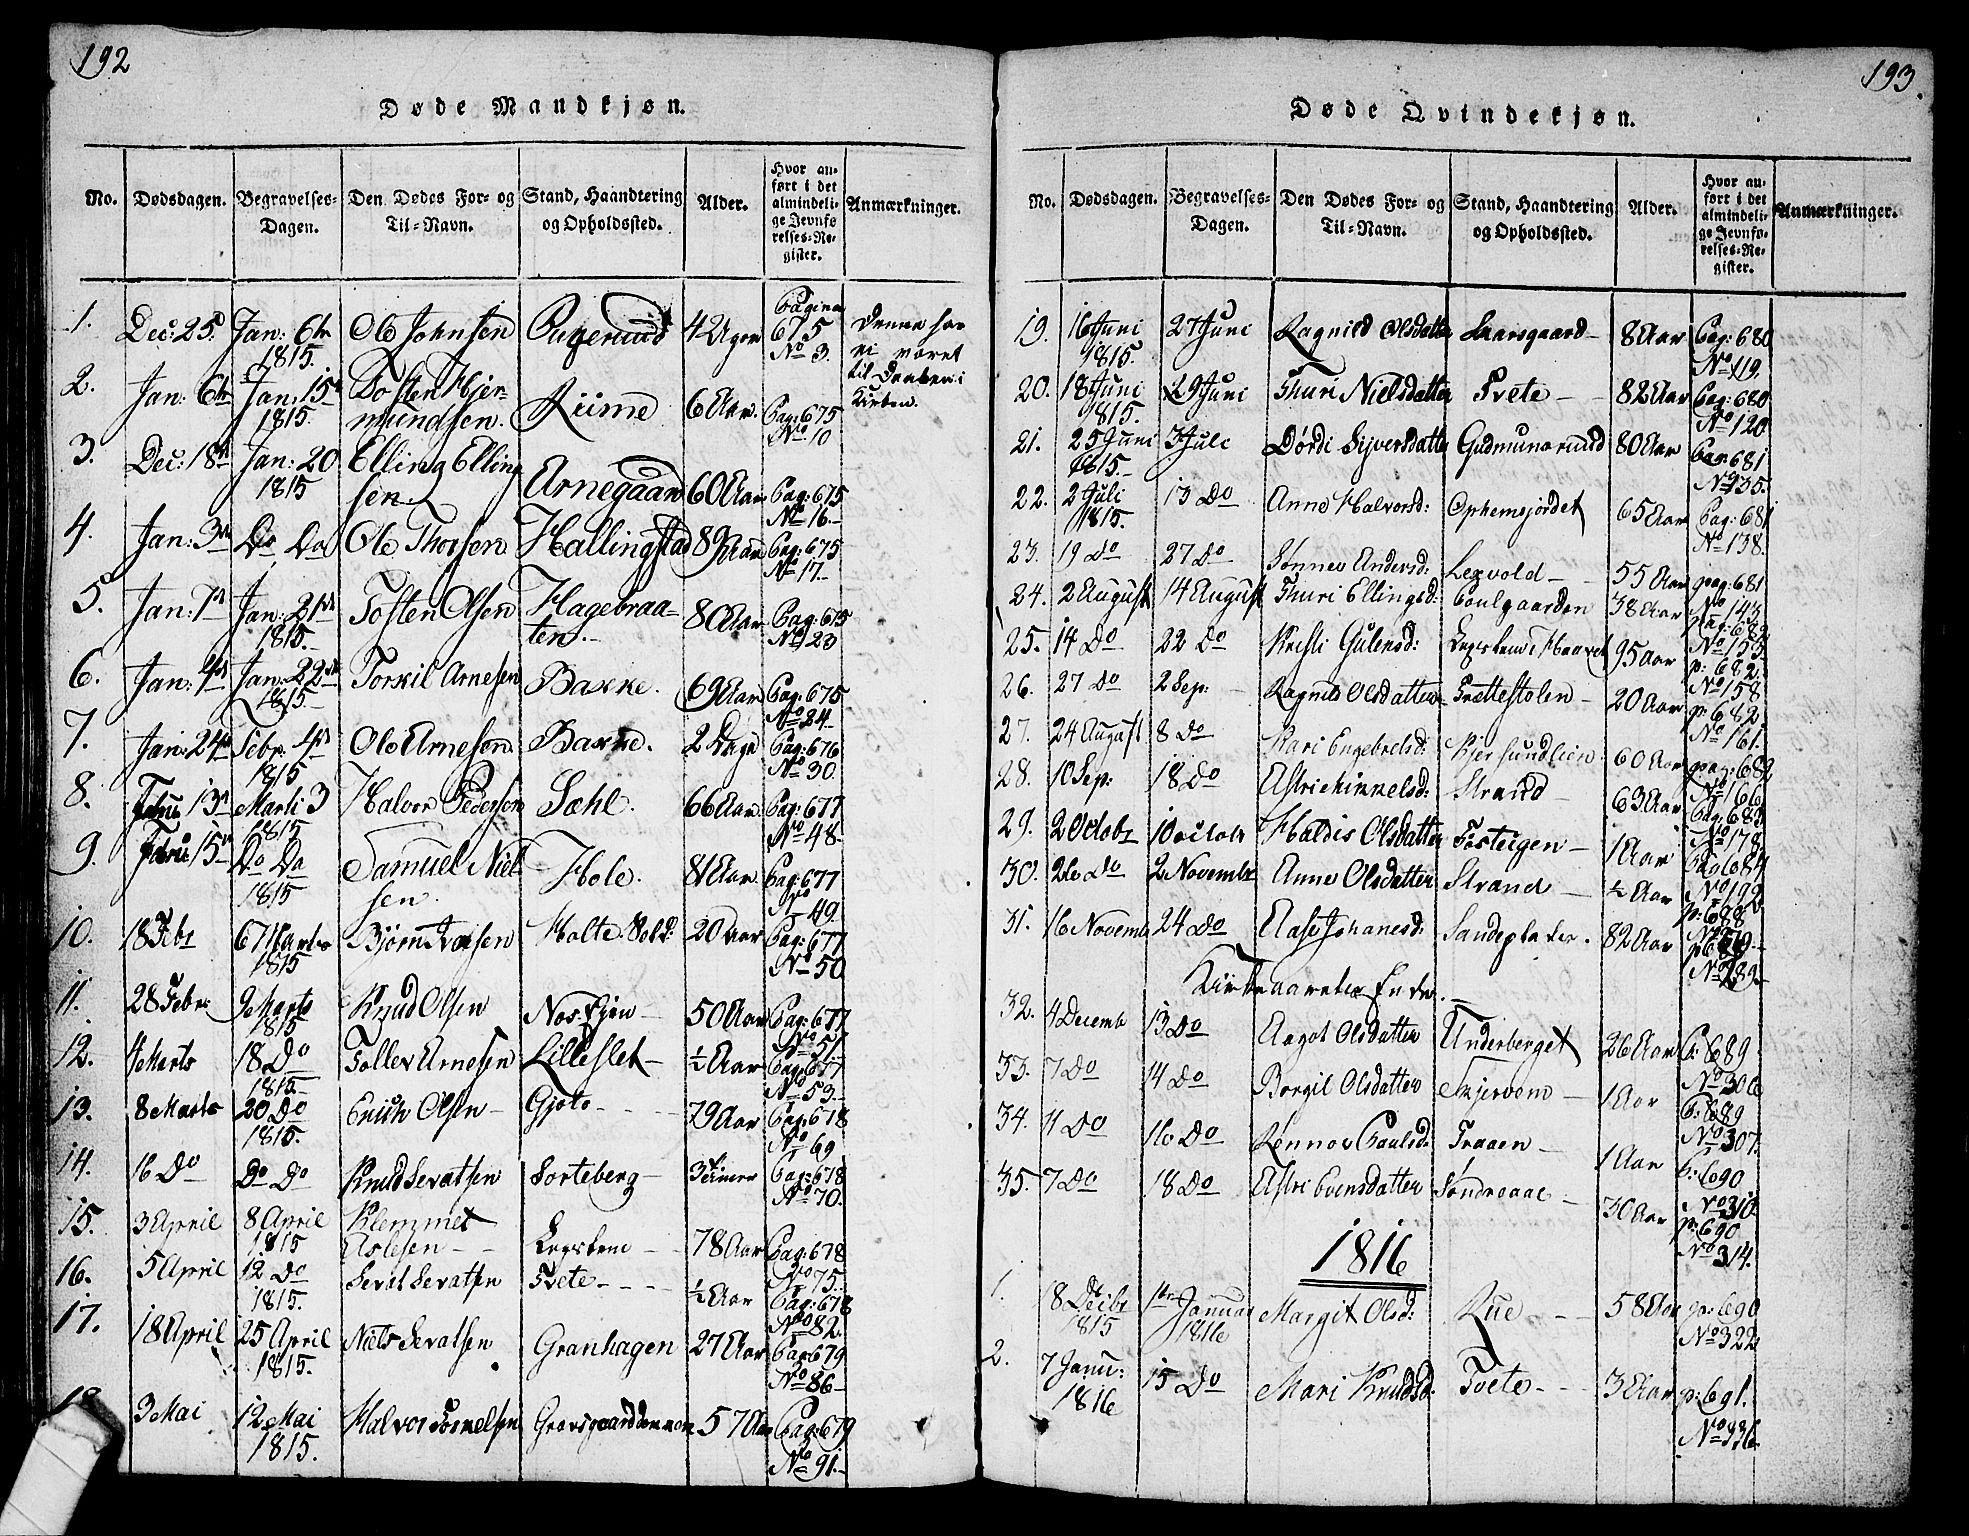 192
Døde Mandkjøn.
No. Dødsdagen. Begravelses-Dagen. Den Dødes For- og Til-Navn. Stand, Haandtering og Opholdssted. Alder. Hvor anført i det almindelige Jevnførelses-Register. Anmærkninger.
1. Dec: 25 Jan: 6te 1815. Ole Johnsen 4 Uger Pagina 675 No 3. Denne har
vi været
til Daaben i
Kirken.
2. Jan: 6te Jan: 15de 1815. Tosten Hjermundsen. Riime 6 Aar. Pag: 675 No 10
3. Dec: 18de Jan: 20 1815 Elling Ellingsen. Arnegaard 60 Aar Pag: 675 No 16.
4. Jan: 3die Do Do Ole Thorsen Hallingstad 89 Aar Pag: 675 No 17.
5. Jan: 1ste Jan: 21de 1815. Tosten Olsen Hagebraaten. 80 Aar Pag: 675 No 23
6. Jan: 4de Jan: 22de 1815. Torkil Arnesen Bakke. 69 Aar Pag: 675 No 24
7. Jan: 24de Febr. 4de 1815 Ole Arnesen Bakke. 2 Dage Pag: 676 No 30.
8. Febru 13de Marti 3 1815 Halvor Pedersen Sæhl. 66 Aar. Pag: 677 No 48.
9. Febru 15de Do Do 1815 Samuel Nielsen. Hole. 81 Aar. Pag: 677 No 49.
10. 18 Febr 6 Marts 1815 Bjørn Iversen Holte 20 Aar Pag: 677 No 50
11. 28 Febr 9 Marts 1815 Knud Olsen 50 Aar Pag: 677 No 51.
12. Marts 18 Do 1815. Tollev Arnesen Lilleslet ½ Aar Pag: 677 No 53.
13. 8 Marts 20 Do 1815. Erich Olsen Gjøto 79 Aar Pag: 678 No 69
14. 16 Do Do Do Knud Sevatsen Sorteberg 3 Timer Pag: 678 No 70.
15. 3 April 8 April 1815 Klemmet Aslesen Legstene 78 Aar Pag: 678 No 75.
16. 5 April 12 Do 1815. Sevat Sevatsen Tvete ½ Aar Pag: 678 No 82.
17. 18 April 25 April 1815. Niels Sevatsen Granhagen 27 Aar Pag 679 No 86
18 3 Mai 12 Mai 1815. Halvor 57 Aar Pag: 679 No 91.
193.
Døde Qvindekjøn.
No. Dødsdagen. Begravelses-Dagen. Den Dødes For- og Til-Navn. Stand, Haandtering og Opholdssted. Alder. Hvor anført i det almindelige Jevnførelses-Register. Anmærkninger.
19. 16 Juni 1815. 27 Juni Ragnild Olsdatter Saarsgaard 8 Aar Pag: 680 No 119.
20. 18 Juni 1815. 29 Juni Thuri Nielsdatter Tvete 82 Aar Pag: 680 No 120
21. 25 Juni 1815. 3 Juli Dørdi Sijversdatter Gudmunsrud 80 Aar Pag: 681 No 135.
22. 2 Juli 1815. 13 Do Anne Halvorsd: Ophemsjordet 65 Aar Pag: 681 No 138.
23. 19 Do 27 Do Sønnev Andersd: Lexvold 55 Aar pag: 681 No 143
24. 2 August 14 August Thuri Ellingsd: Poulgaarden 38 Aar pag: 682 No 153
25. 14 Do 22 Do Kristi Gulensd: 95 Aar p: 682. No 158
26. 27 Do 2 Sep: Ragnild Olsdatter Trættestolen 20 Aar p: 682. No 161.
27. 24 August 8 Do Kari Engebretsd: 60 Aar pag: 682 No 166
28. 10 Sep: 18 Do Astri Strand 63 Aar Pag: 683 No 178
29. 2 Octobr 10 Octobr Haldis Olsdatter Tosteigen 1 Aar Pag 684 No 192
30. 26 Do 2 Novembr Anne Olsdatter Strand ½ Aar p: 688
31. 16 Novemb 24 Do Aase Johanesd: Sandeplads. 82 Aar No 289.
Kirkeaarets Ende.
32. 4 Decemb 13 Do Aagot Olsdatter Underberget 26 Aar P: 689 No 306
33. 7 Do 14 Do Borgil Olsdatter Skjervem 1 Aar P: 689 No 307.
34. 11 Do 16 Do Rønnov Paulsd: Traaen 1 Aar P: 690 No 310
35. 7 Do 18 Do Astri Evensdatter Søndreaal 30 Aar p: 690 No 314.
1816
1. 18 Decbr 1815 1ste Januar 1816 Margit Olsd: Rue 58 Aar p: 690 No 322
2. 7 Janu: 1816 15 Do Mari Knudsd: Tvete 3 Aar p: 691. No 336